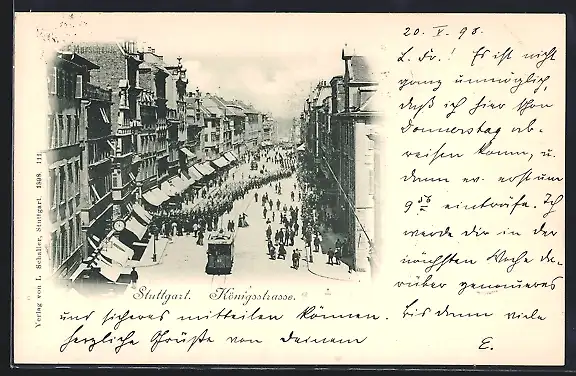 20. V. 98.
L. Fr.! Es ist nicht
ganz unmöglich,
daß ich hier schon
Donnerstag ab-
reisen kann, u.
dann ev. erst um
9 56 eintrüfe. Ich
werde dir in der
nächsten Woche da-
rüber genaueres
und sicheres mitteilen können. Bis dann viele
herzliche Grüße von deinem
E.
Stuttgart. Königsstrasse.
Verlag von L. Schaller, Stuttgart. 1898. 111.